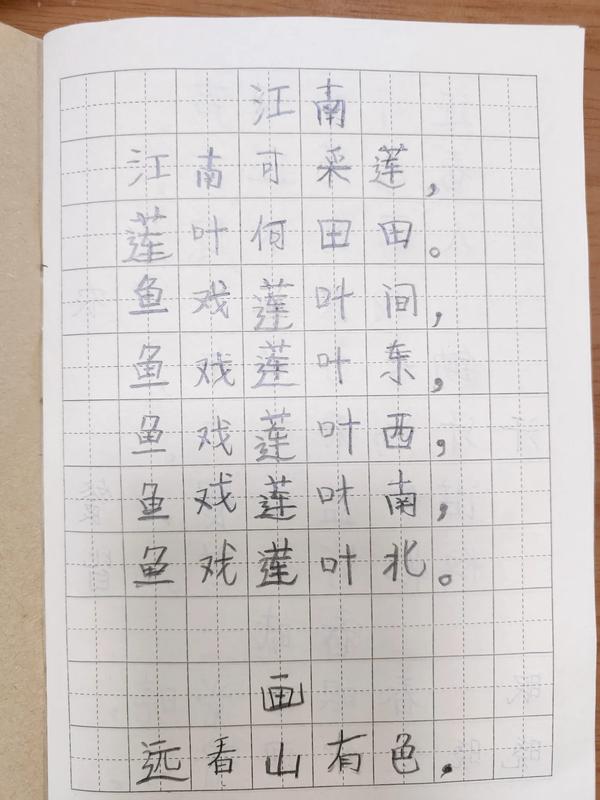 江南
江南可采莲，
莲叶何田田。
鱼戏莲叶间，
鱼戏莲叶东，
鱼戏莲叶西，
鱼戏莲叶南，
鱼戏莲叶北。
画
远看山有色，